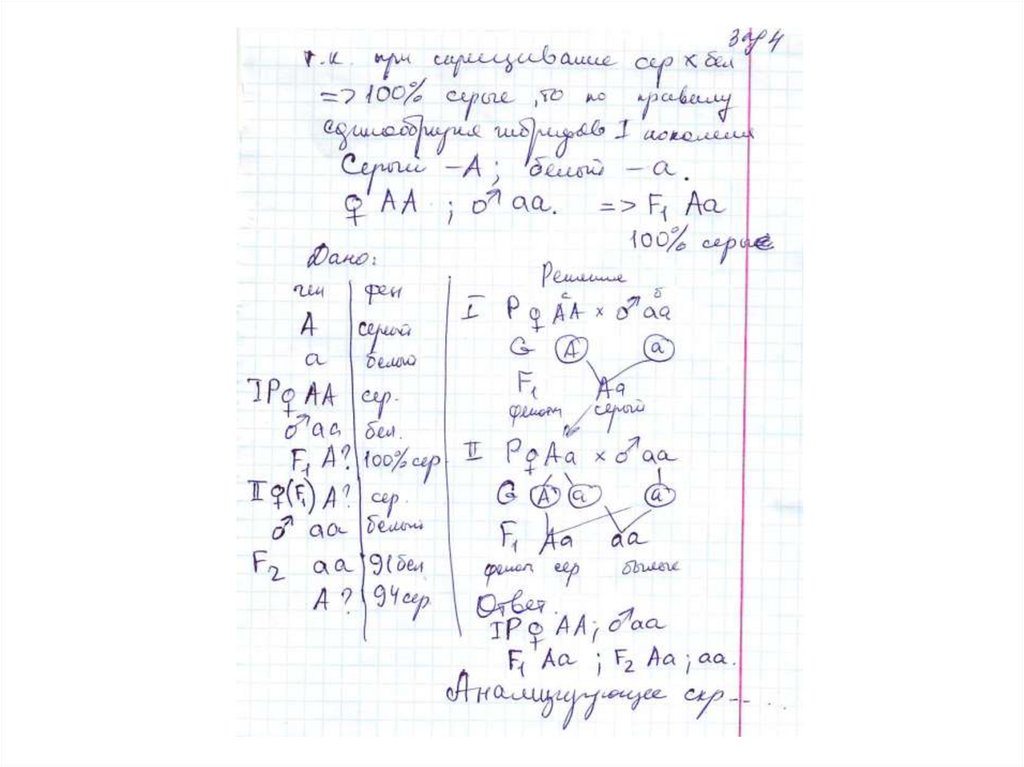 Зад 4
т.к. при скрещивание сер x бел
=> 100% серые, то по правилу
единообразия гибридов I поколения
Серый - А; белый - а.
♀ АА ; ♂ аа. => F₁ Аа
100% серые
Дано:
ген | фен
А | серый
а | белый
I P ♀ АА | сер.
♂ аа | бел.
F₁ А? | 100% сер
II ♀(F₁) А? | сер.
♂ аа | белый
F₂ аа | 91 бел
А? | 94 сер
Решение
с б
I P ♀ АА x ♂ аа
G А а
F₁ Аа
фенот серый
II P ♀ Аа x ♂ аа
G А а а
F₁ Аа аа
фенот сер белые
Ответ.
I P ♀ АА; ♂ аа
F₁ Аа ; F₂ Аа ; аа.
Анализирующее скр--...